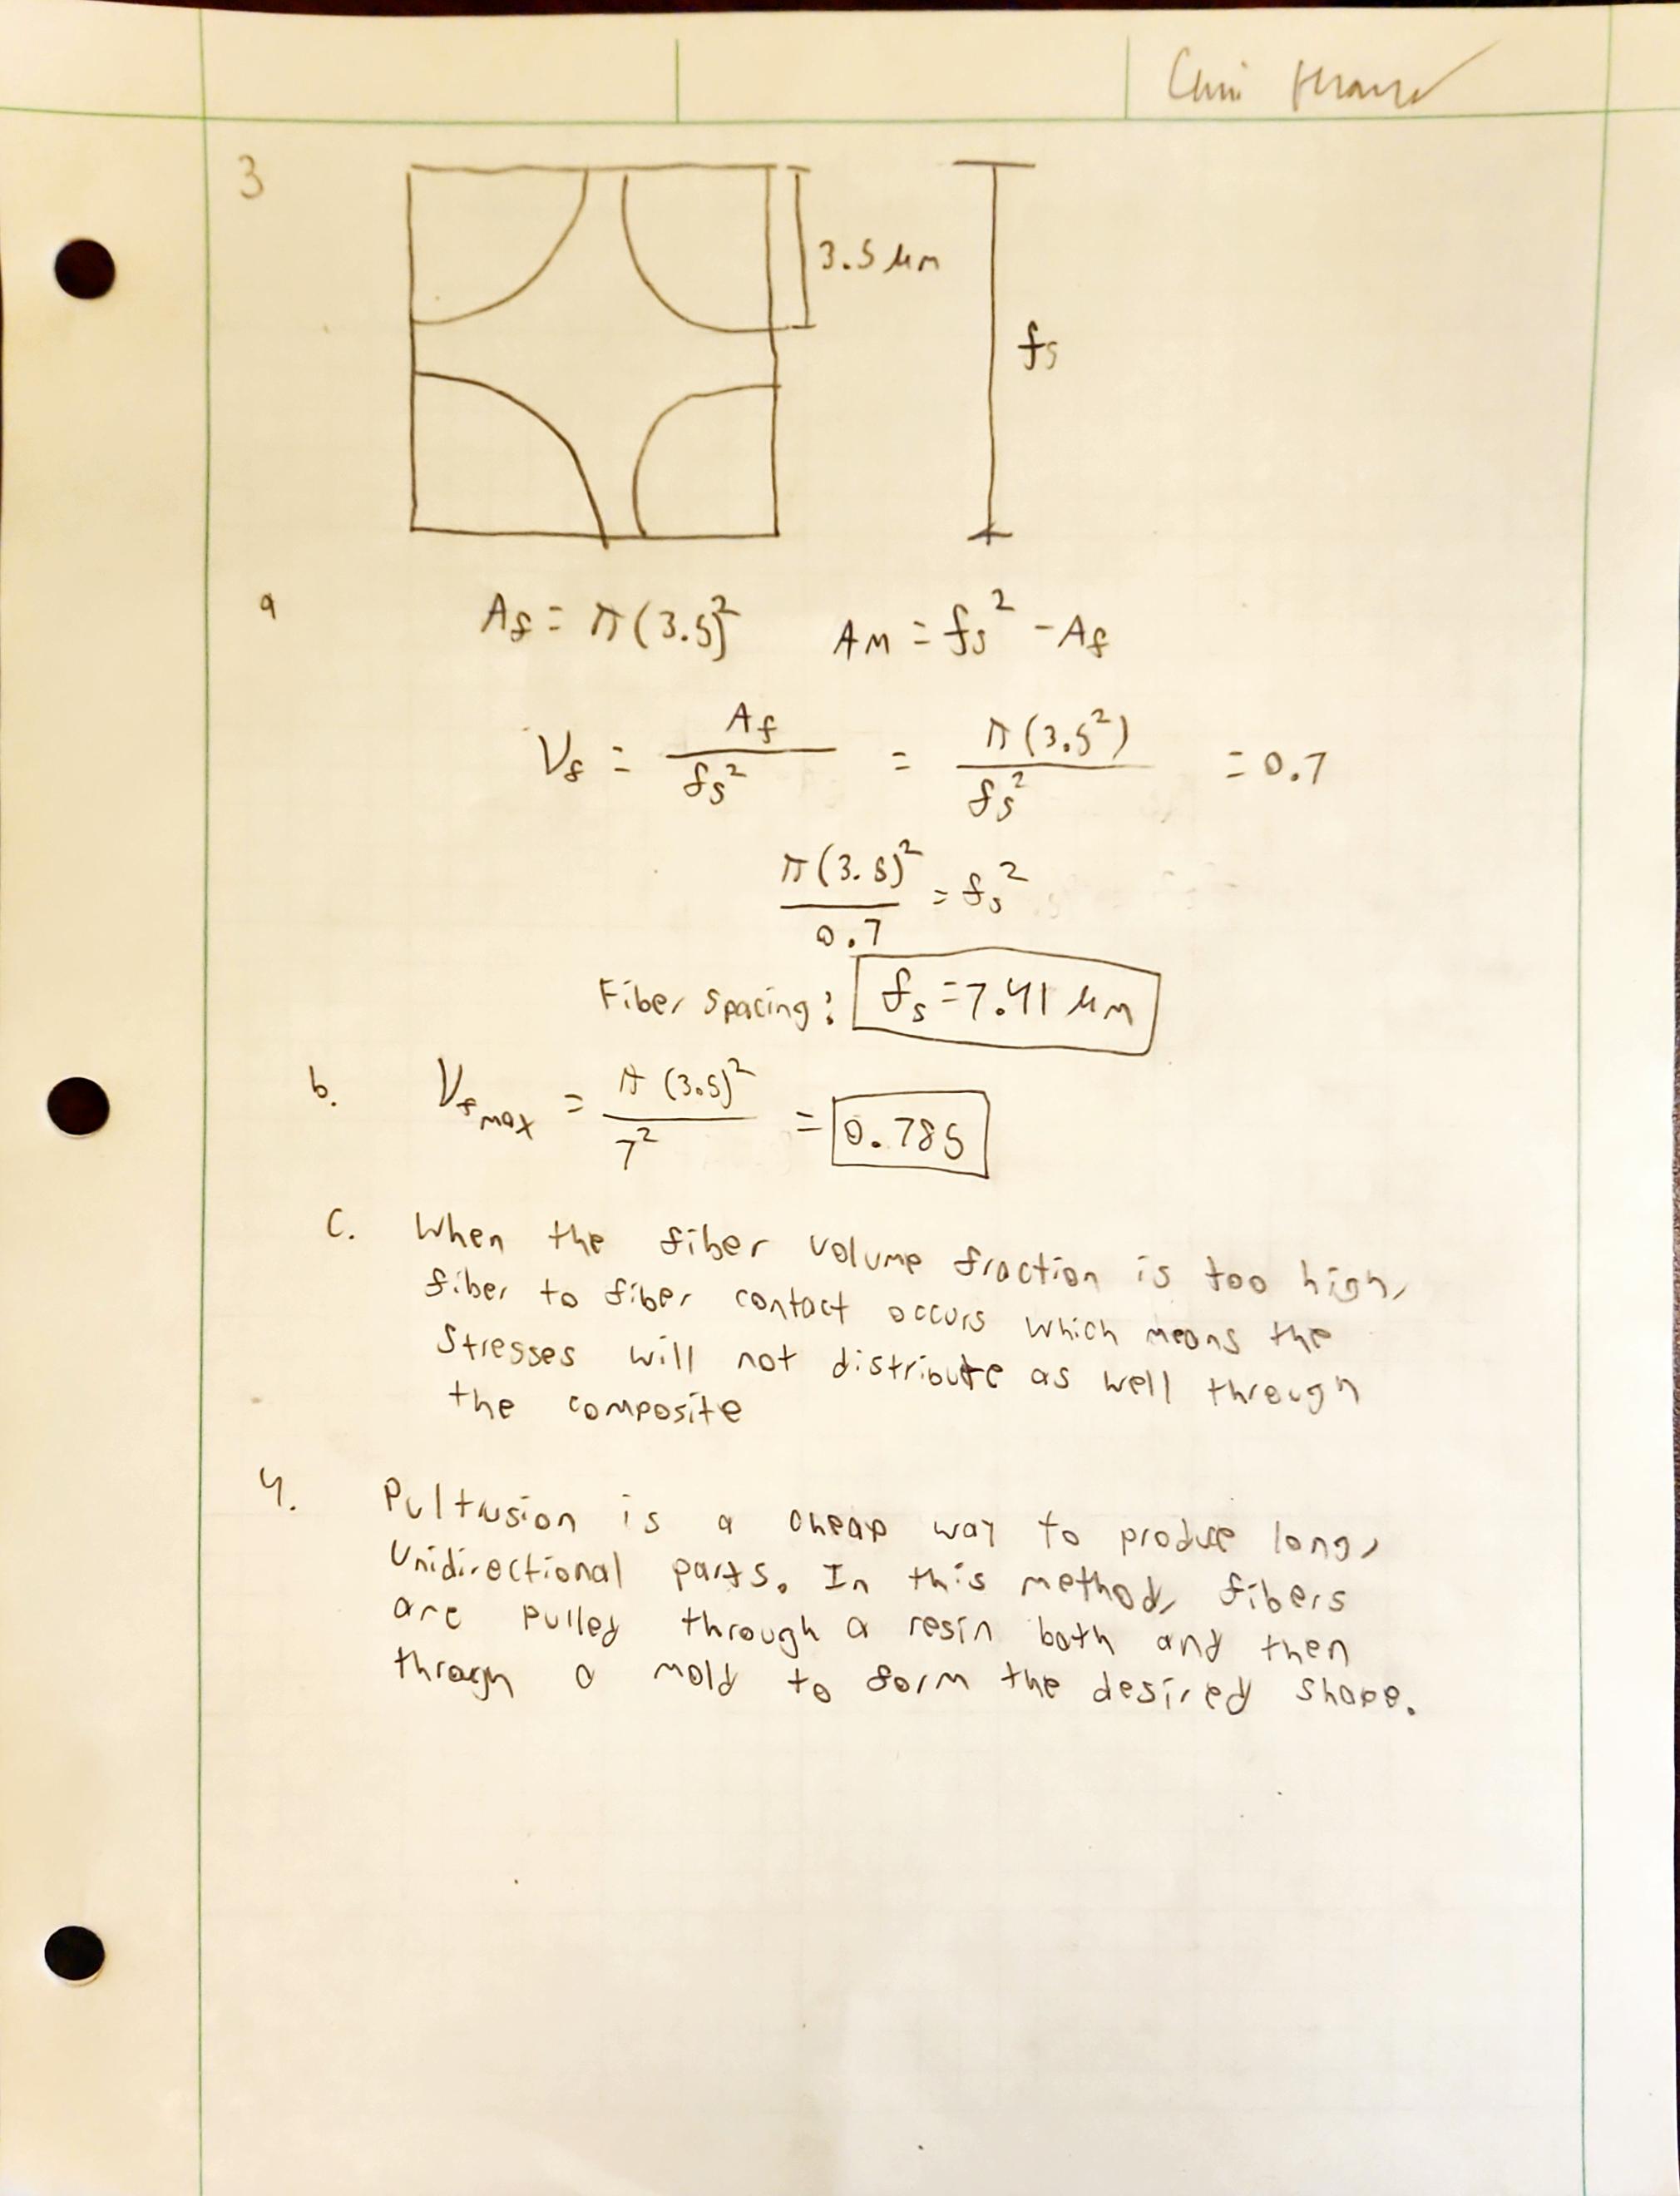 3
3.5 μm
fs
a
Af = π(3.5)² AM = fs² - Af
Vf = Af / fs² = π(3.5²) / fs² = 0.7
π(3.5)² / 0.7 = fs²
Fiber Spacing: fs = 7.41 μm
b. Vf max = π(3.5)² / 7² = 0.785
C. When the fiber volume fraction is too high,
fiber to fiber contact occurs which means the
Stresses will not distribute as well through
the composite
4. Pultrusion is a cheap way to produce long,
Unidirectional parts. In this method, fibers
are pulled through a resin bath and then
through a mold to form the desired shape.